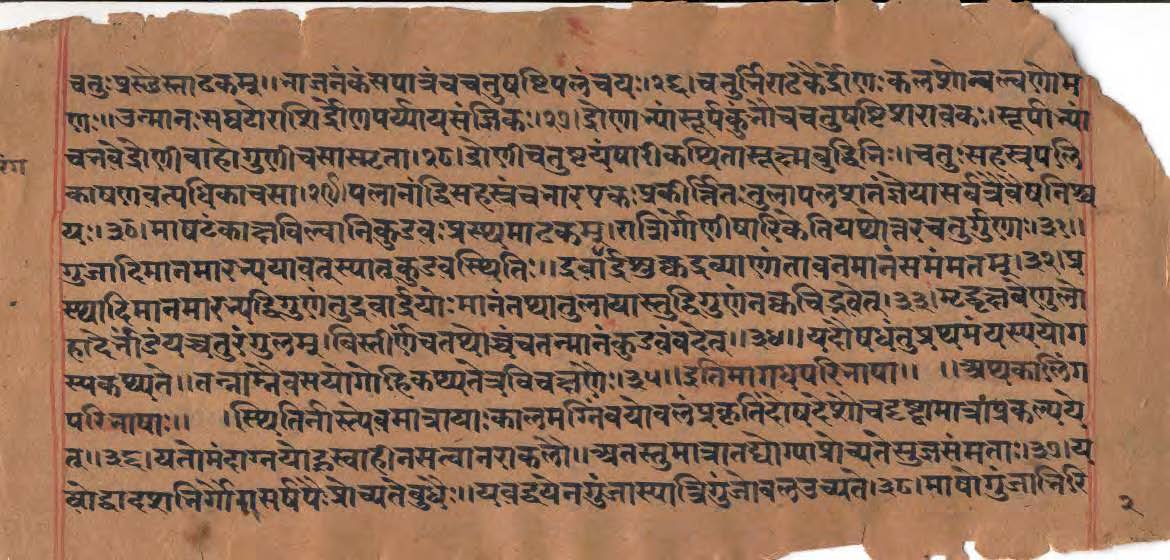 चतुःप्रस्थैस्तथाढकम्॥भाजनंकंसपात्रंचचतुषष्टिपलंचयः।२६।चतुर्भिराढकैर्द्रोणःकलशोन्वल्वणोम
णः॥उन्मानःसघटोराशिर्द्रोणपर्य्यायसंज्ञिकः।२७।द्रोणाभ्यांसूर्पकुंभौचचतुषष्टिशरावकः।सूर्पाभ्यां
चभवेद्रोणीवाहोगुणीचसास्मृता।२८।द्रोणीचतुष्टयंषारीकथितासूक्ष्मबुद्धिभिः॥चतुःसहस्रपलि
काषणवत्यधिकाचसा।२९।पलानांद्विसहस्रंचभारएकःप्रकीर्त्तितःतुलापलशतंज्ञेयासर्वत्रैवैषनिश्च
यः।३०।माषटंकाक्षविल्वानिकुडवःप्रस्थमाढकम्।राशिर्गोणीषारिकेतियथोत्तरचतुर्गुणाः।३१॥
गुंजादिमानमारभ्ययावत्स्यात्कुडवस्थितिः॥द्रवार्द्रशुष्कद्रव्याणांतावन्मानंसमंमतम्।३२।प्र
स्थादिमानमारभ्यद्विगुणंतुद्रवार्द्रयोःमानंतथातुलायास्तुद्विगुणंनक्वचिद्भवेत्।३३।मृद्वृक्षवेणुलो
हादेर्भांडंयच्चतुरंगुलम्।विस्तीर्णंचतथोच्चंचतन्मानंकुडवंवदेत्॥३४॥यदौषधंतुप्रथमंयस्ययोग
स्यकथ्यते॥तन्नाम्नैवसयोगोहिकथ्यतेत्रविचक्षणैः।३५॥इतिमागधपरिभाषा॥ ॥अथकालिंग
परिभाषाः॥ ।स्थितिर्नास्त्येवमात्रायाःकालमग्निवयोबलंप्रकृतिंदोषदेशौचदृष्ट्वामात्रांप्रकल्पये
त्॥३६।यतोमंदाग्नयोह्रस्वाहीनसत्वानराकलौ॥अतस्तुमात्रातद्योग्याप्रोच्यतेसुज्ञसंमताः।३७।य
वोद्वादशभिर्गौरसर्षपैःप्रोच्यतेबुधैः॥यवद्वयेनगुंजास्यात्त्रिगुंजोवल्लउच्यते।३८।माषोगुंजाभिरि
२